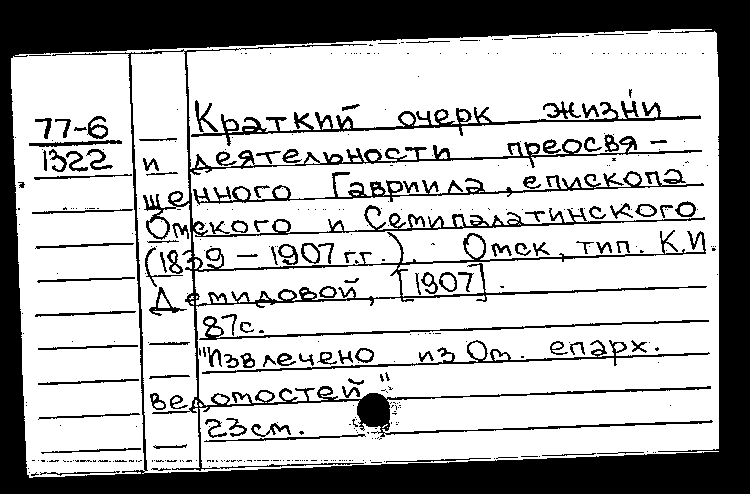 77-6
1322
Краткий очерк жизни
и деятельности преосвя-
щенного Гавриила, епископа
Омского и Семипалатинского
(1839 - 1907 г.г.). Омск, тип. К.И.
Демидовой, [1907].
87с.
"Извлечено из Ом. епарх.
ведомостей"
23см.